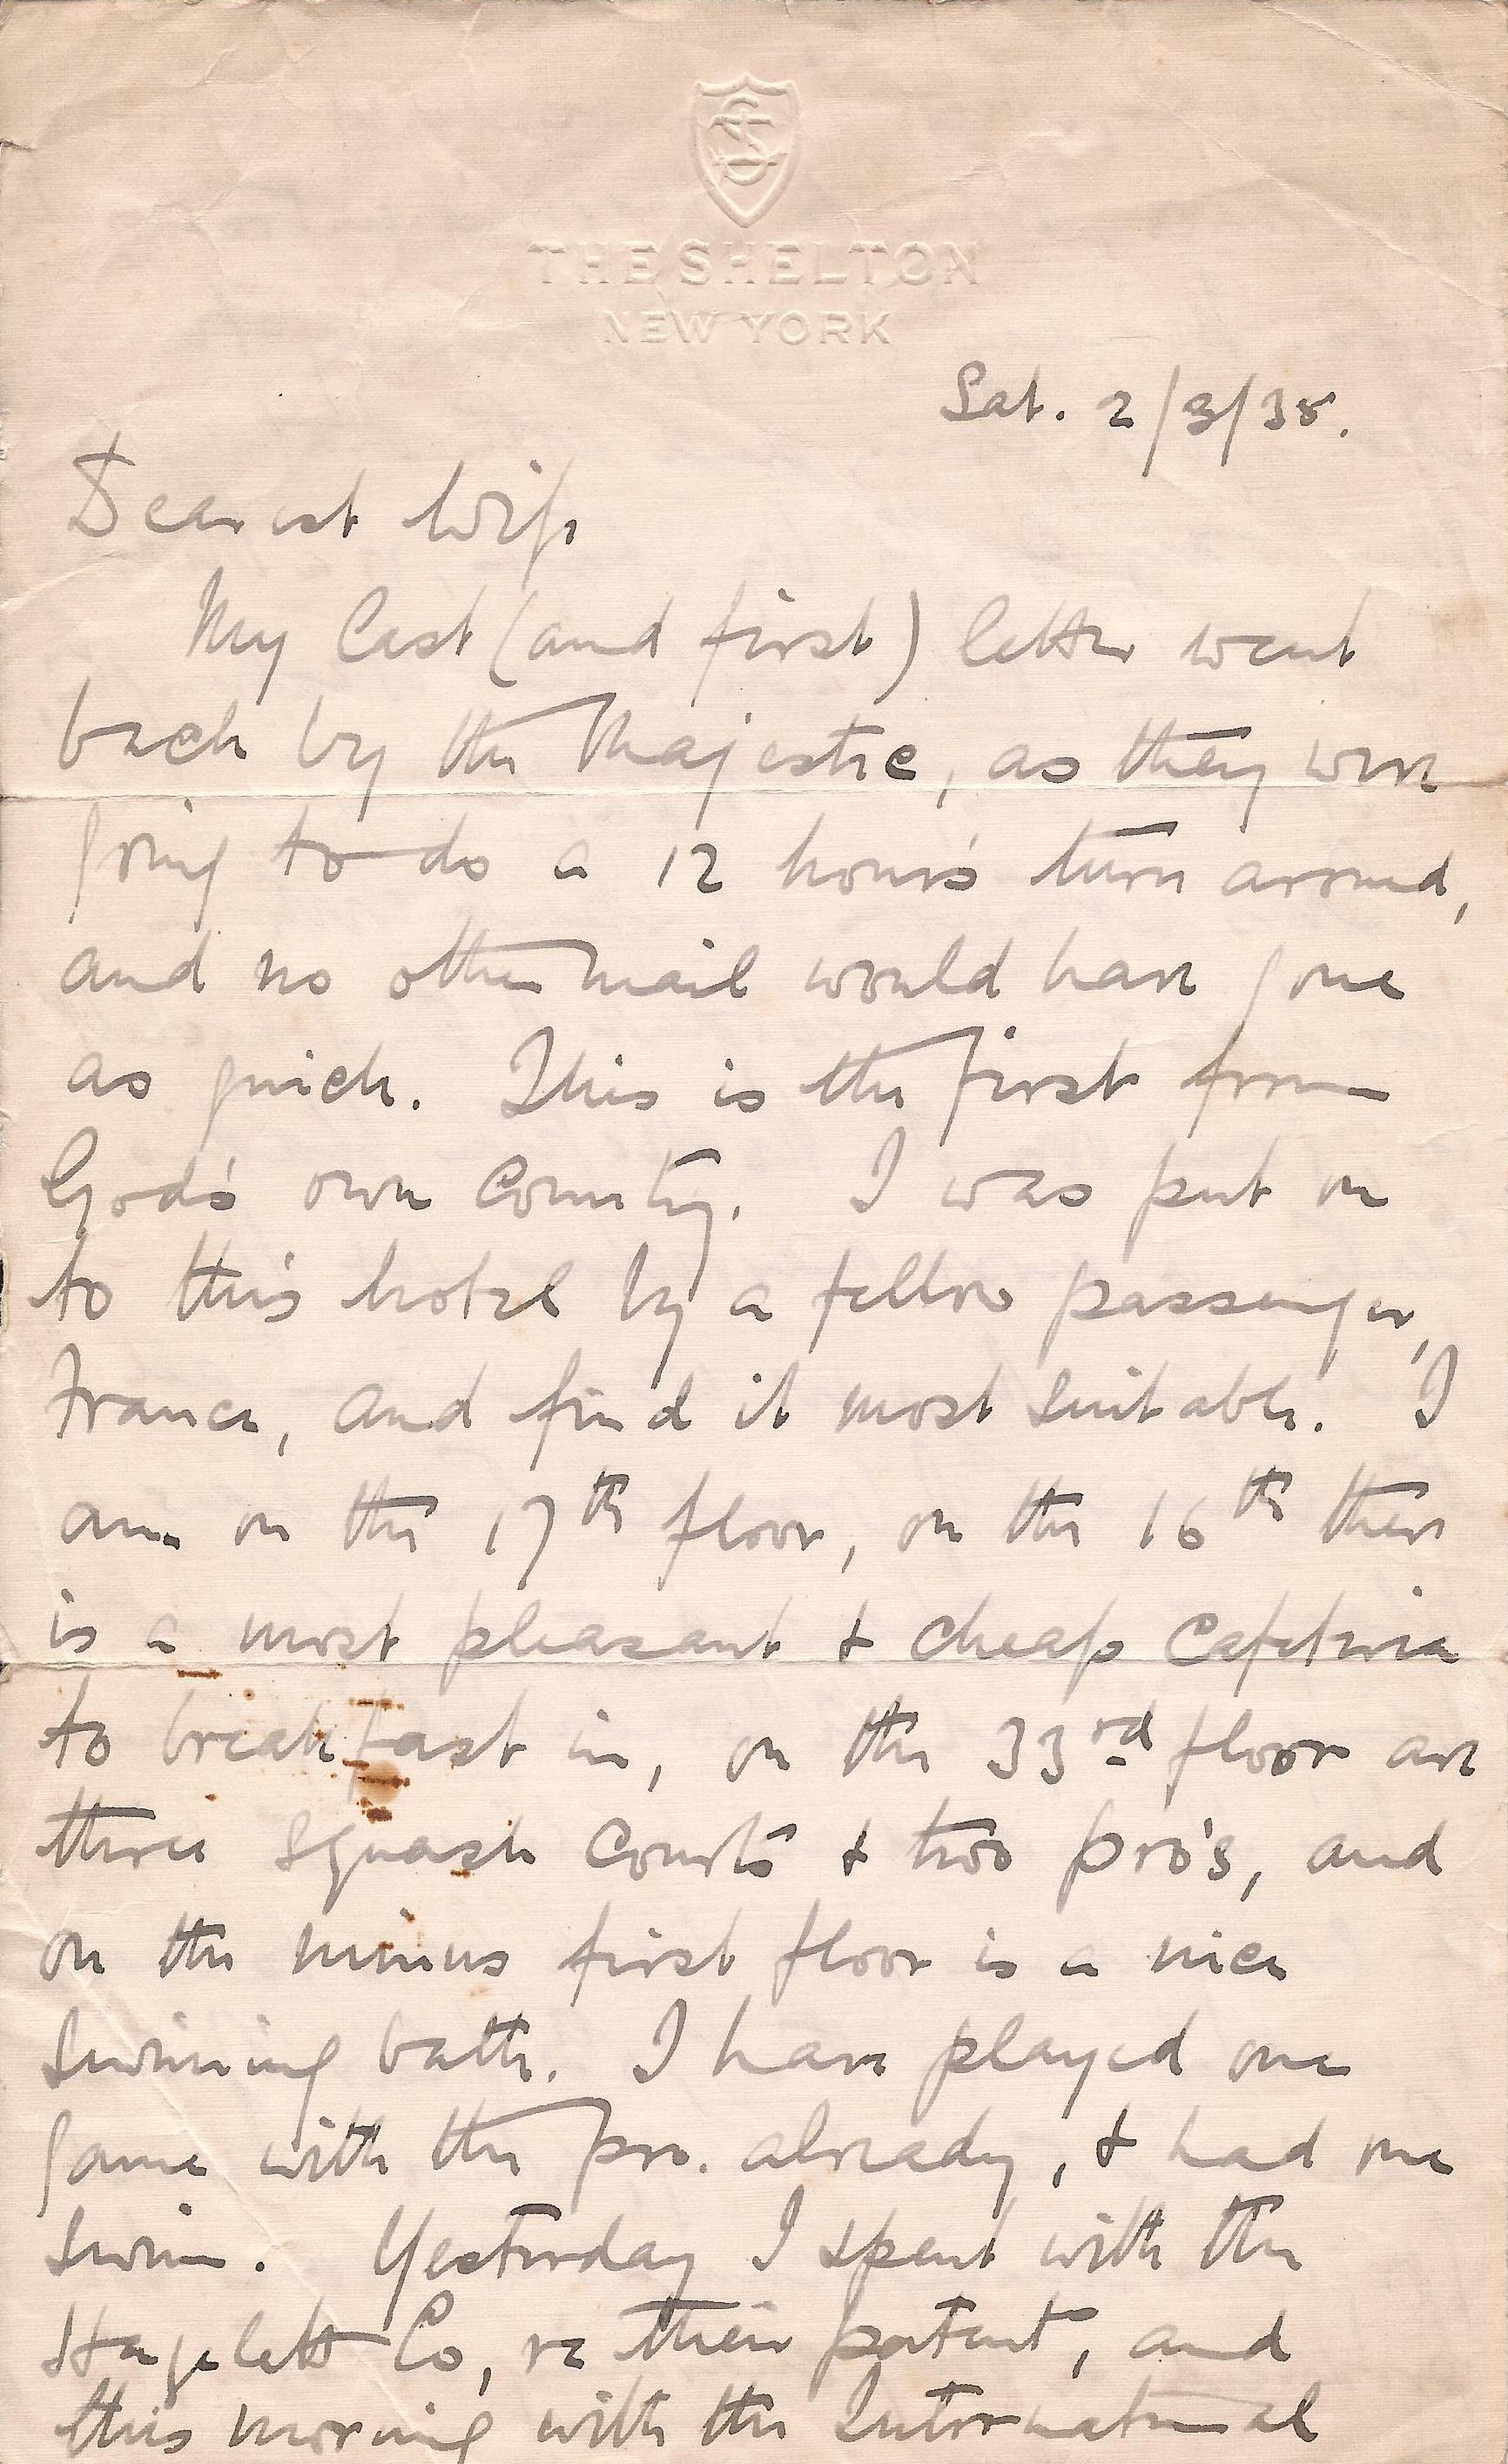 THE SHELTON
NEW YORK
Sat. 2/3/35.
Dearest Wife
My last (and first) letter went
back by the Majestic, as they were
going to do a 12 hours turn around,
and no other mail would have gone
as quick. This is the first from
God's own Country. I was put on
to this hotel by a fellow passenger,
France, and find it most suitable. I
am on the 17th floor, on the 16th there
is a most pleasant & cheap Cafeteria
to breakfast in, on the 33rd floor are
three squash Courts & two pro's, and
on the minus first floor is a nice
swimming bath. I have played one
game with the pro. already, & had one
swim. Yesterday I spent with the
Hazelett Co, re their patents, and
this morning with the International